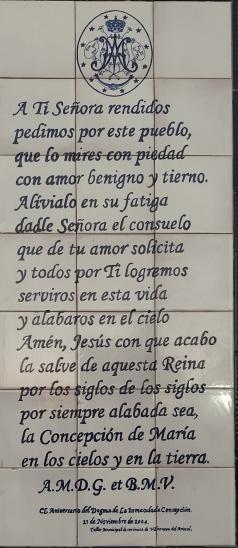 A Ti Señora rendidos
pedimos por este pueblo,
que lo mires con piedad
con amor benigno y tierno.
Alivialo en su fatiga
dadle Señora el consuelo
que de tu amor solicita
y todos por Ti logremos
serviros en esta vida
y alabaros en el cielo
Amén, Jesús con que acabo
la salve de aquesta Reina
por los siglos de los siglos
por siempre alabada sea,
la Concepción de María
en los cielos y en la tierra.
A.M.D.G. et B.M.V.
CL Aniversario del Dogma de La Inmaculada Concepción.
21 de Noviembre de 2004.
Taller Municipal de cerámica de Villarrasa del